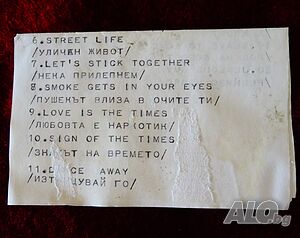 6.STREET LIFE
/УЛИЧЕН ЖИВОТ/
7.LET'S STICK TOGETHER
/НЕКА ПРИЛЕПНЕМ/
8.SMOKE GETS IN YOUR EYES
/ПУШЕКЪТ ВЛИЗА В ОЧИТЕ ТИ/
9.LOVE IS THE TIMES
/ЛЮБОВТА Е НАРКОТИК/
10.SIGN OF THE TIMES
/ЗНАКЪТ НА ВРЕМЕТО/
11. AWAY
ГО/
ALO.bg